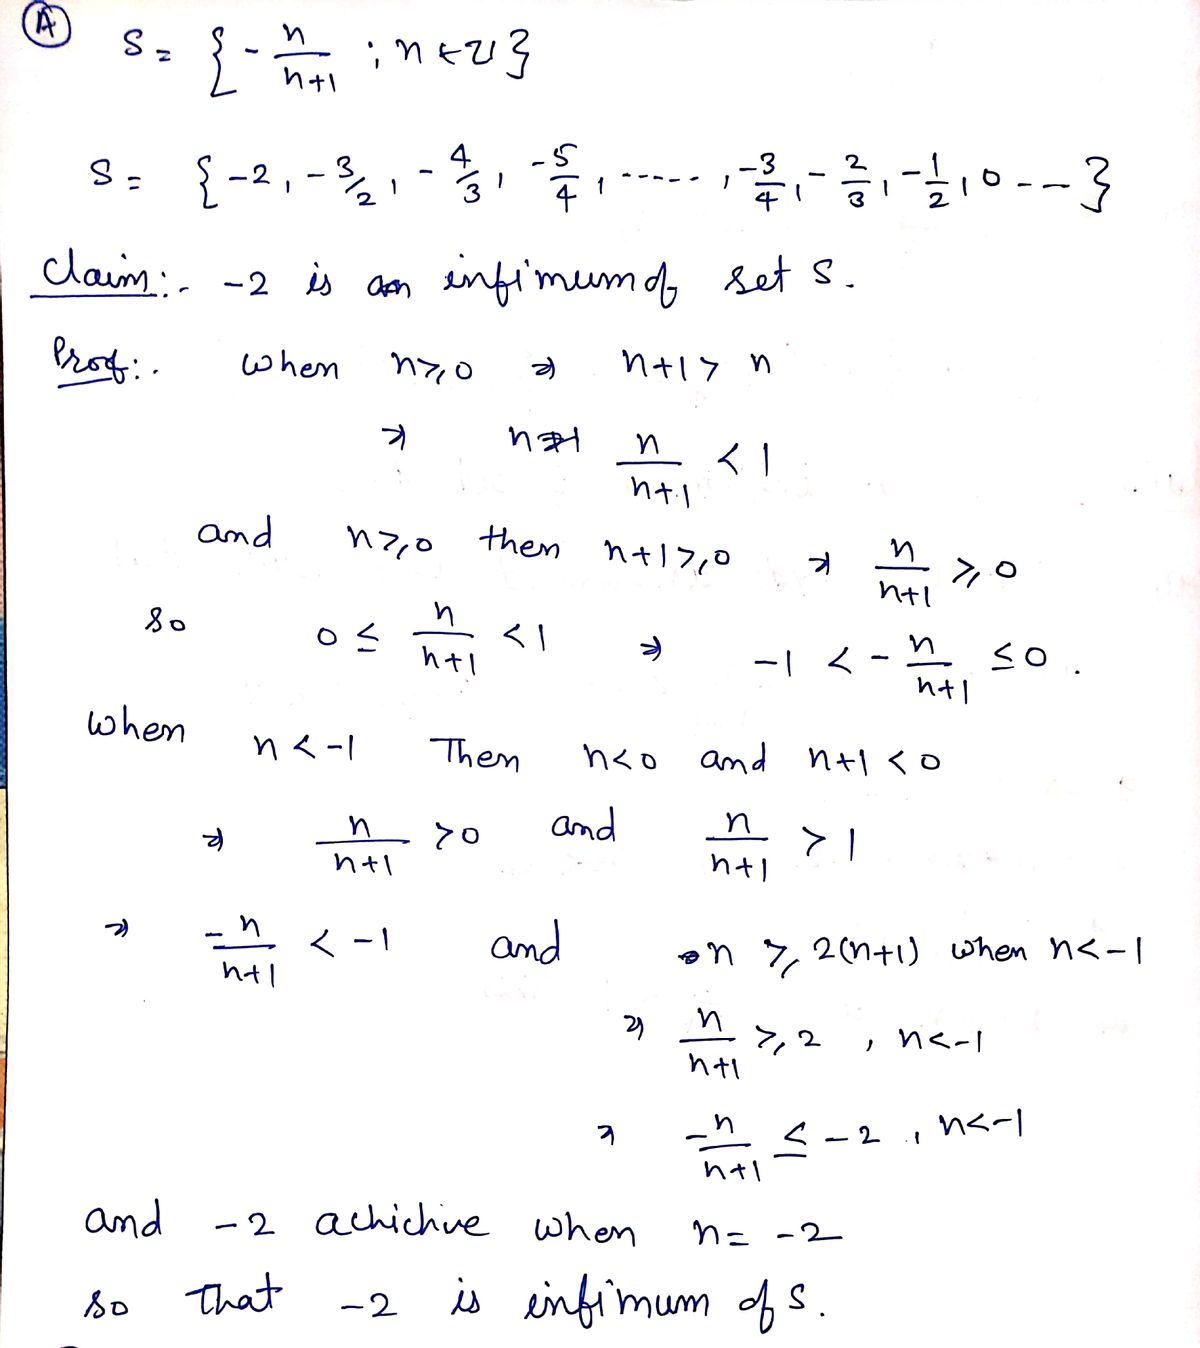 A
S = { - n/n+1 ; n ∈ Z }
S = { -2, -3/2, -4/3, -5/4, ....., -3/4, -2/3, -1/2, 0 --- }
Claim:- -2 is an infimum of set S.
Prof:. When n ≥ 0 ⇒ n+1 > n
⇒ n/n+1 < 1
and n ≥ 0 then n+1 ≥ 0 ⇒ n/n+1 ≥ 0
so 0 ≤ n/n+1 < 1 ⇒ -1 < -n/n+1 ≤ 0.
when n < -1 Then n < 0 and n+1 < 0
⇒ n/n+1 > 0 and n/n+1 > 1
⇒ -n/n+1 < -1 and n ≥ 2(n+1) when n < -1
⇒ n/n+1 ≥ 2, n < -1
⇒ -n/n+1 ≤ -2, n < -1
and -2 achichive when n = -2
so that -2 is infimum of S.